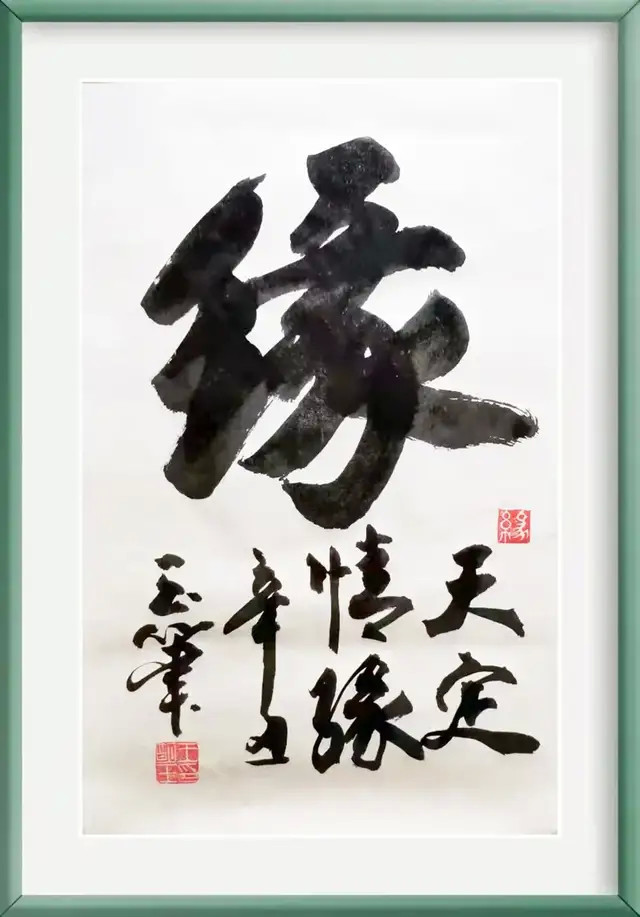 缘
緣
天定
情缘
辛丑
玉筆